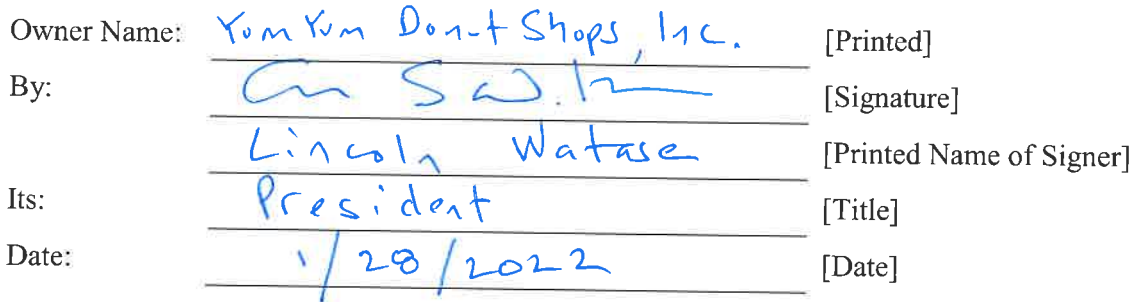 Owner Name: Yum Yum Donut Shops, Inc. [Printed]
By: [Signature]
Lincoln Watase [Printed Name of Signer]
Its: President [Title]
Date: 1/28/2022 [Date]